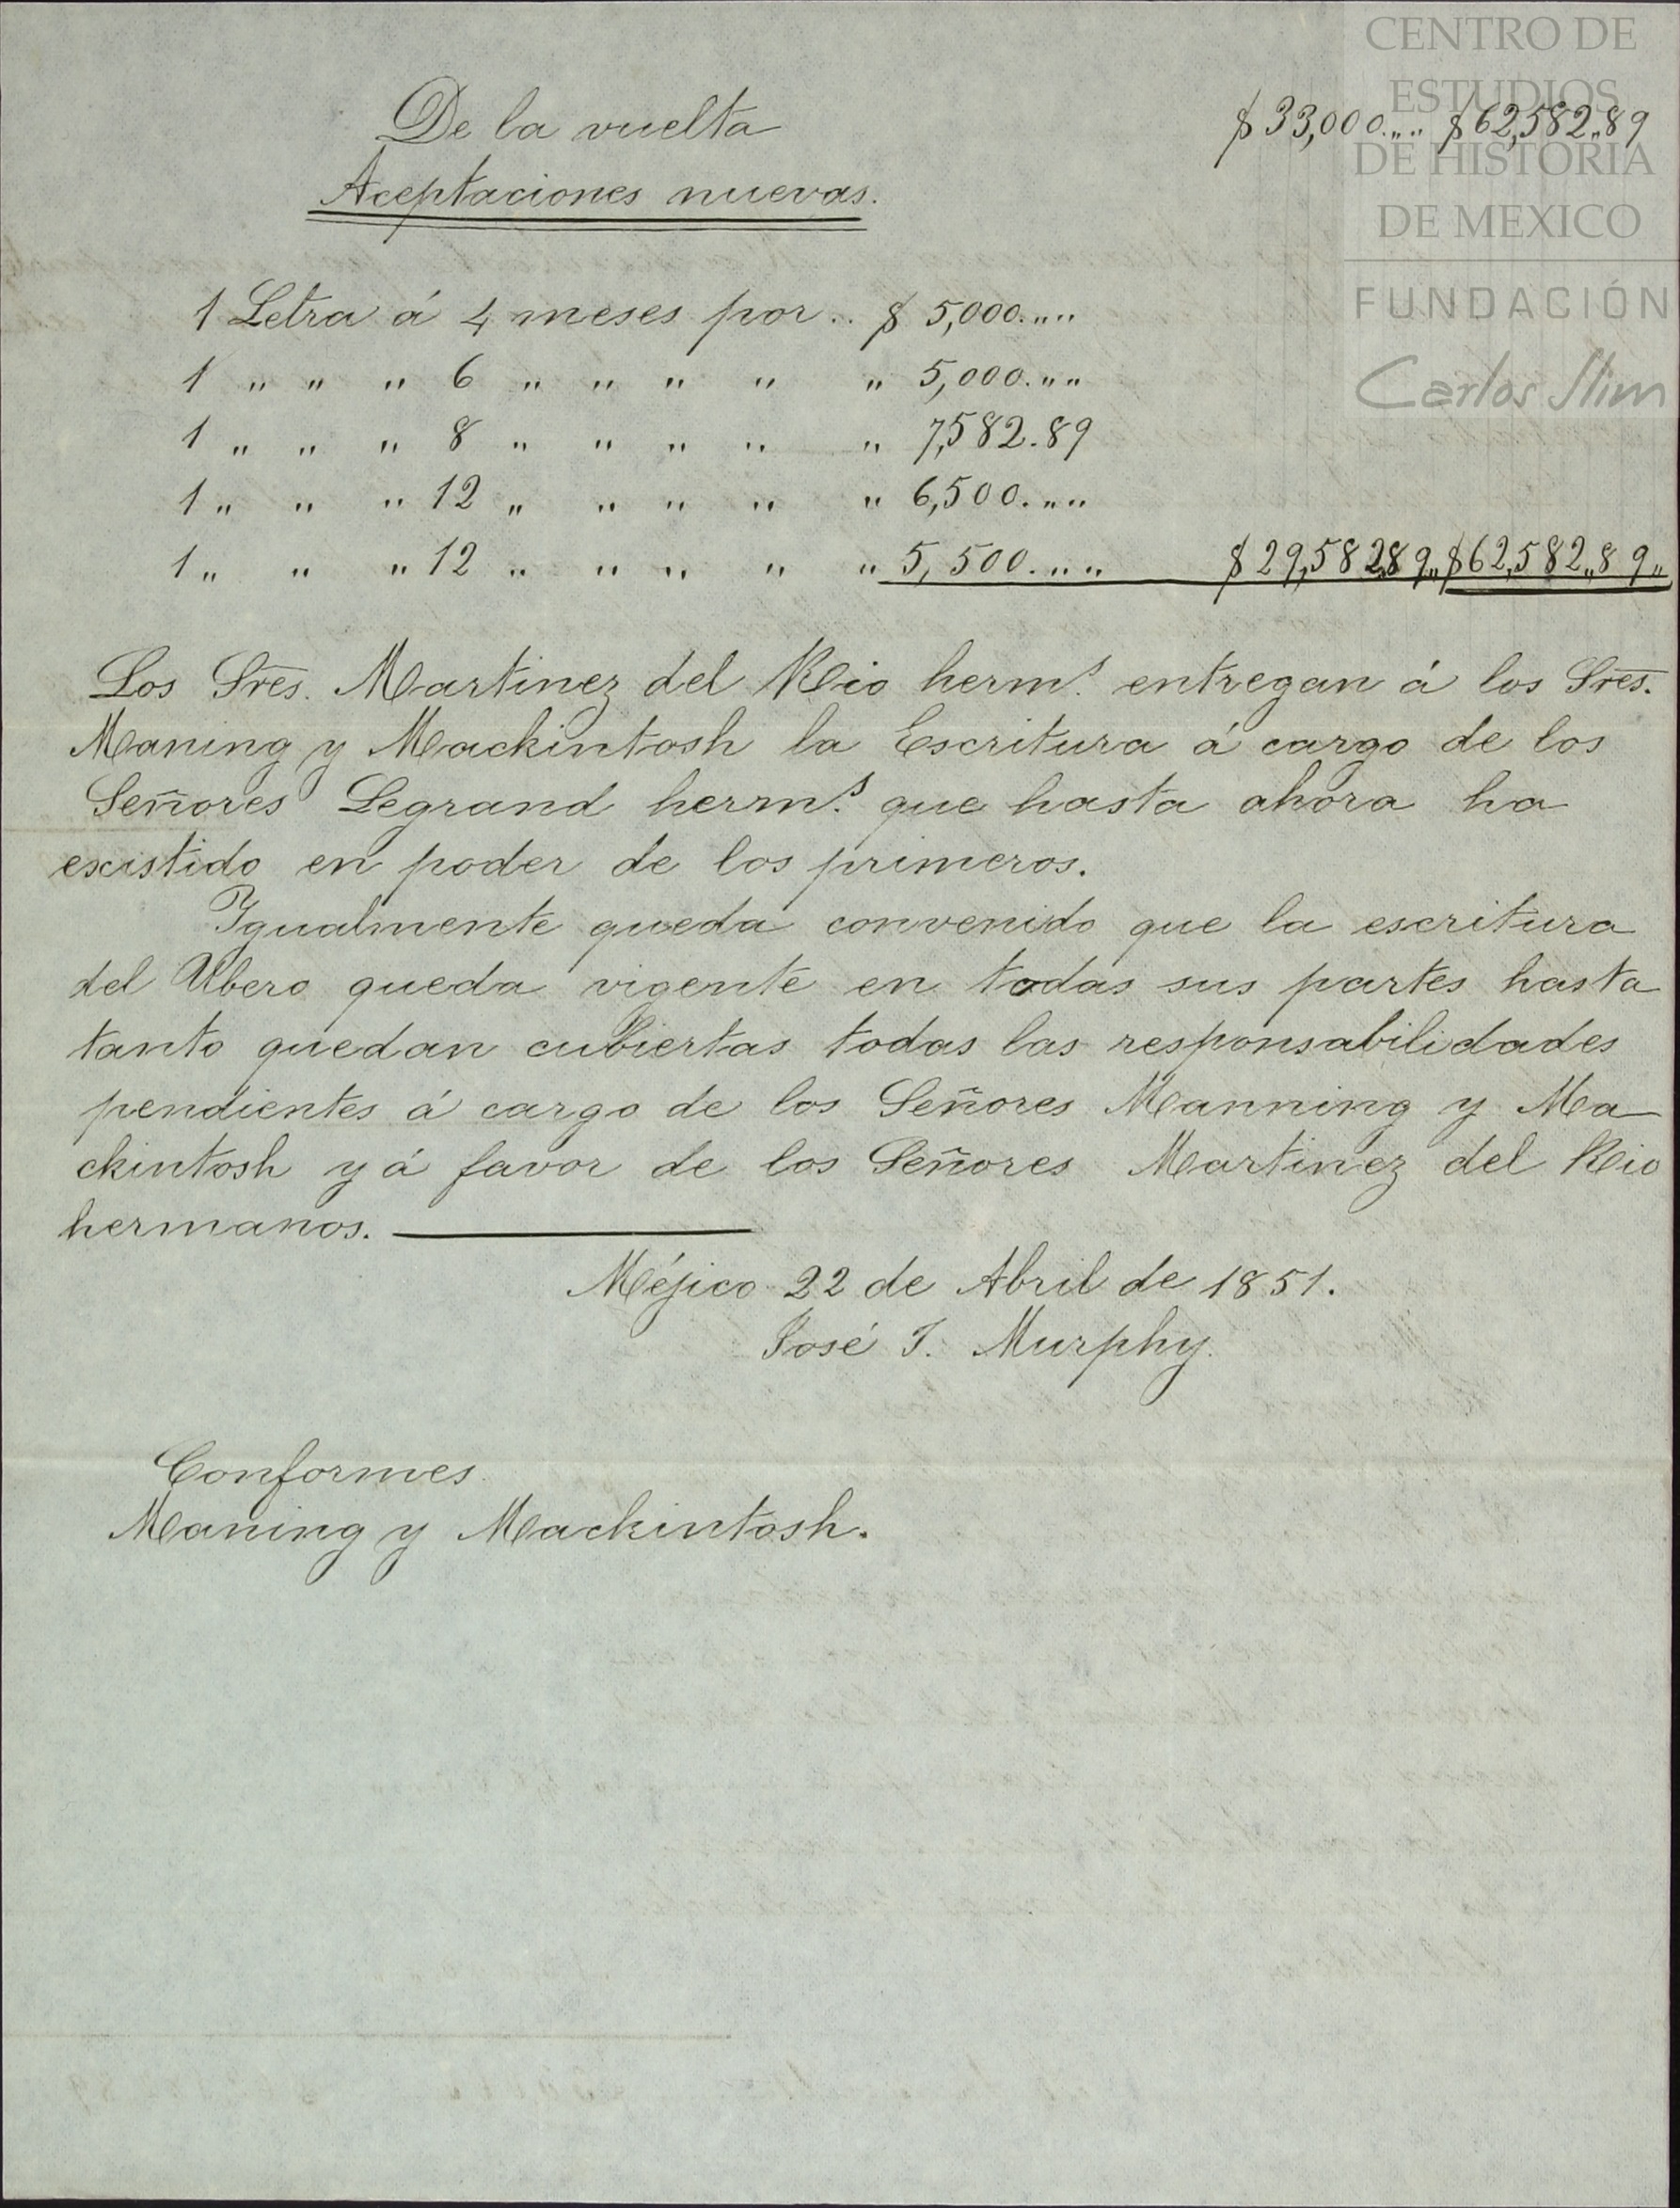 CENTRO DE
ESTUDIOS
DE HISTORIA
DE MEXICO
FUNDACIÓN
Carlos Slim
De la vuelta $33,000.„.. $62,582„89
Aceptaciones nuevas.
1 Letra á 4 meses por .. $ 5,000.„..
1 „ „ „ 6 „ „ „ „ „ 5,000.„„
1 „ „ „ 8 „ „ „ „ „ 7,582.89
1 „ „ „ 12 „ „ „ „ „ 6,500.„..
1 „ „ „ 12 „ „ „ „ „ 5,500.„.. $29,582.89„ $62,582„89„
Los Sres. Martinez del Rio herms. entregan á los Sres.
Maning y Mackintosh la Escritura á cargo de los
Señores Legrand herms. que hasta ahora ha
existido en poder de los primeros.
Igualmente queda convenido que la escritura
del Ubero queda vigente en todas sus partes hasta
tanto quedan cubiertas todas las responsabilidades
pendientes á cargo de los Señores Manning y Ma
ckintosh y á favor de los Señores Martinez del Rio
hermanos.
Méjico 22 de Abril de 1851.
José J. Murphy.
Conformes
Maning y Mackintosh.